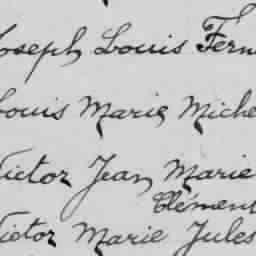 Joseph Louis Fern
Louis Marie Miche
Victor Jean Marie
Clément
Victor Marie Jules